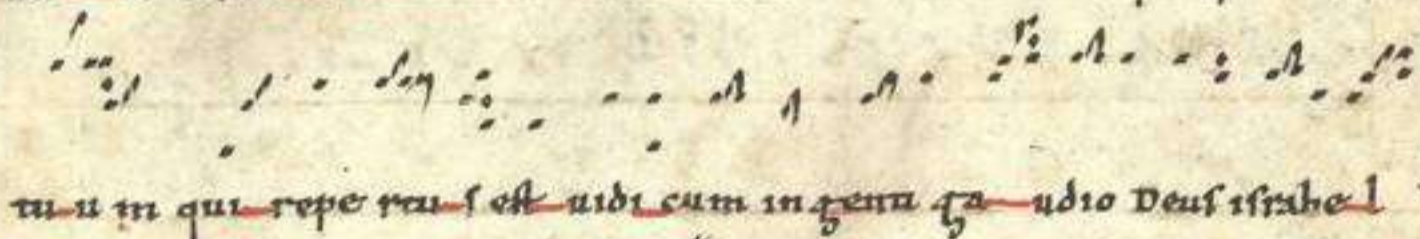 tu-u m qui-repe rtu-s est uidi cum ingenti ga-udio Deus israhe-l